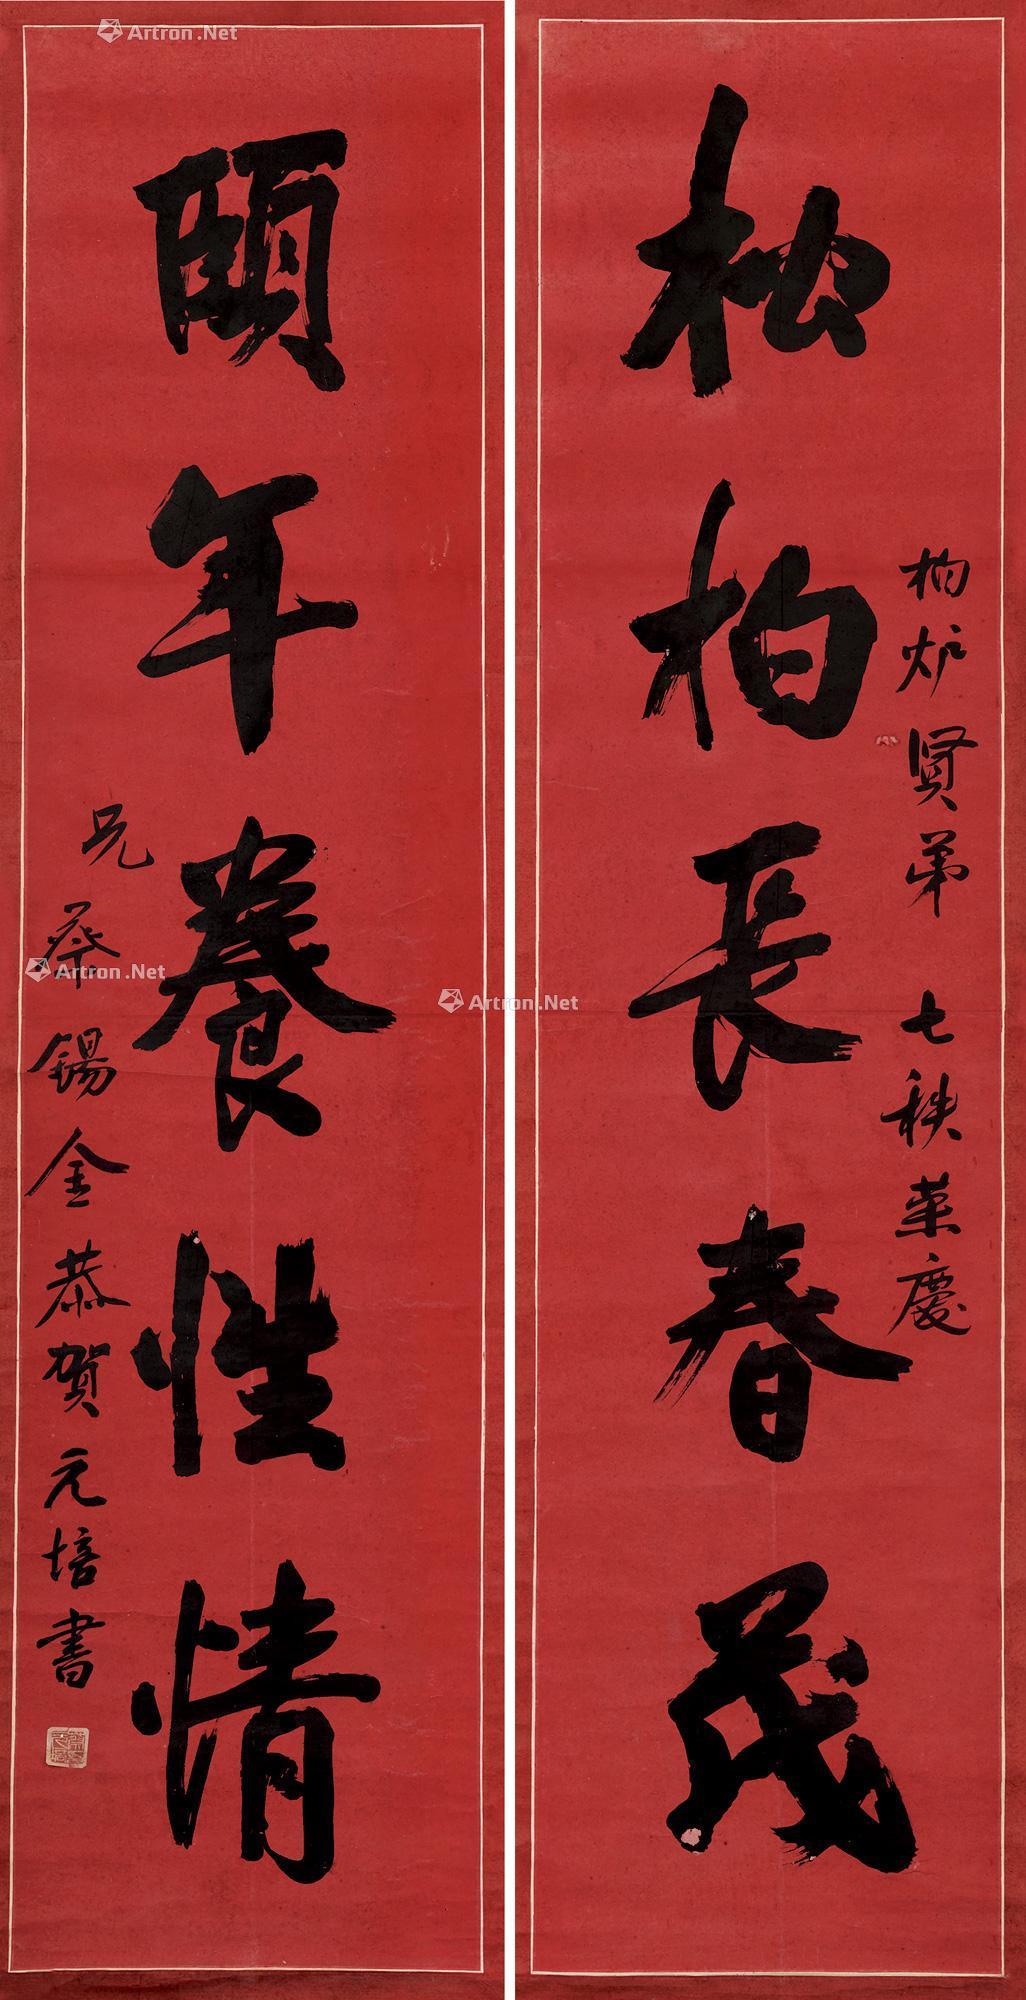 松柏長春茂
柏炉贤弟 七秩荣慶
頤年養性情
兄蔡錫金恭贺元培書
Artron.Net
Artron.Net
Artron.Net